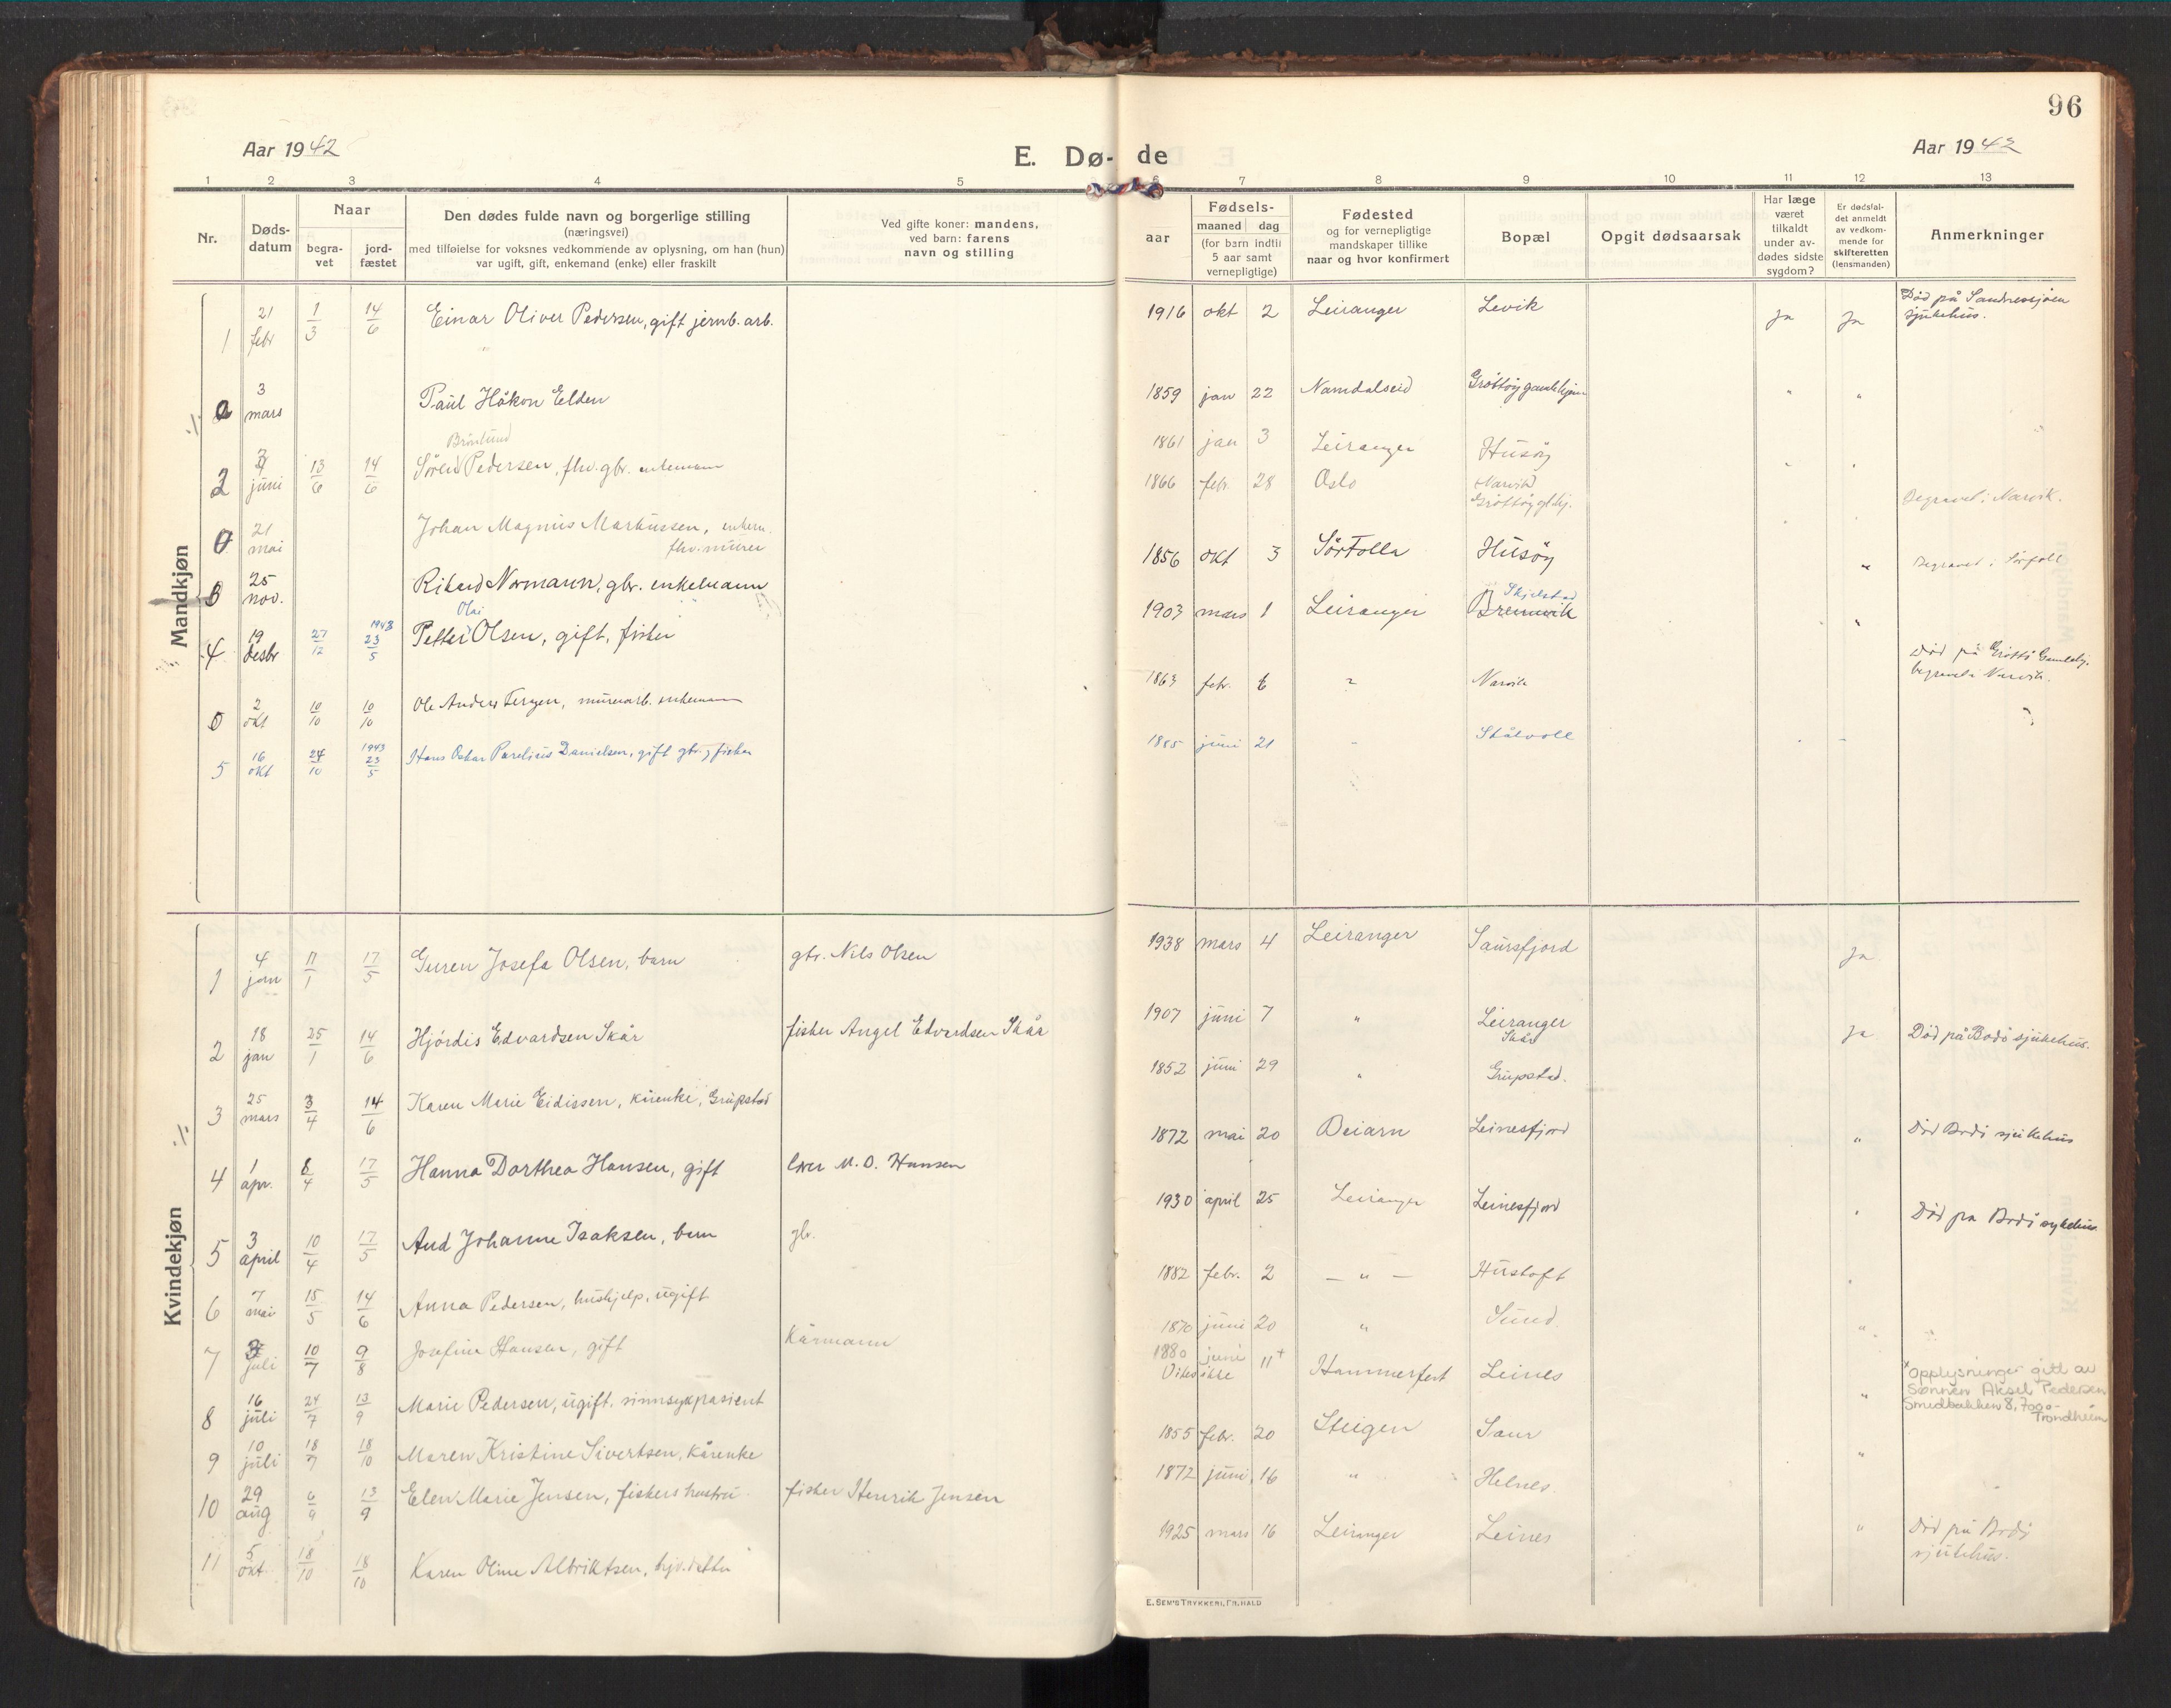 96
Aar 1942
E. Dø-
de
Aar 1942
1 2 3 4 5
6 7 8 9 10 11 12 13
Nr.
Døds-
datum
Naar
begra-
vet
jord-
fæstet
Den dødes fulde navn og borgerlige stilling
(næringsvei)
med tilføielse for voksnes vedkommende av oplysning, om han (hun)
var ugift, gift, enkemand (enke) eller fraskilt
Ved gifte koner: mandens,
ved barn: farens
navn og stilling
aar
Fødsels-
maaned dag
(for barn indtil
5 aar samt
vernepligtige)
Fødested
og for vernepligtige
mandskaper tillike
naar og hvor konfirmert
Bopæl
Opgit dødsaarsak
Har læge
været
tilkaldt
under av-
dødes sidste
sygdom?
Er dødsfal-
det anmeldt
av vedkom-
mende for
skifteretten
(lensmanden)
Anmerkninger
Mandkjøn
1 21 febr 1/3 14/6 Einar Oliver Pedersen, gift jernb. arb. 1916 okt 2 Leiranger Levik Ja Ja Død på Sandnessjøen
sjukehus.
0 3 mars Paul Håkon Elden 1859 jan 22 Namdalseid Grøttøy gamlehjem " "
Brønlund
2 juni 13/6 14/6 Søren Pedersen, fhv. gbr. enkemann 1861 jan 3 Leiranger Husøy " "
0 21 mai Johan Magnus Markussen, enkem.
fhv. murer 1866 febr. 28 Oslo Narvik
Grøttøy glhj. " Begravet i Narvik.
25 nov. Rikard Normann, gbr. enkemann 1856 okt 3 Sørfolla Husøy " Begravet i Sørfold
Olai
4 19 desbr 27/12 1943 23/5 Petter Olsen, gift, fisker 1903 mars 1 Leiranger Skjelstad
Brennvik "
0 2 okt 10/10 10/10 Ole Anders Tergen, murerarb. enkemann 1863 febr. 6 ? Narvik Død på Grøttø Gamlehj.
begravet i Narvik.
5 16 okt 24/10 1943 23/5 Hans Oskar Parelius Danielsen, gift gbr. og fisker 1885 juni 21 " Stålvoll " "
Kvindekjøn
1 4 jan 11/1 17/5 Guren Josefa Olsen, barn gbr. Nils Olsen 1938 mars 4 Leiranger Saursfjord Ja
2 18 jan 25/1 14/6 Hjørdis Edvardsen Skår fisker Angel Edvardsen Skår 1907 juni 7 " Leiranger
Skår Ja Død på Bodø sjukehus.
3 25 mars 3/4 14/6 Karen Marie Eidissen, kårenke, Grupstad 1852 juni 29 " Grupstad.
4 1 apr. 8/4 17/5 Hanna Dorthea Hansen, gift lærer M. O. Hansen 1872 mai 20 Beiarn Leinesfjord " Død Bodø sjukehus
5 3 april 10/4 17/5 Aud Johanne Isaksen, barn gbr. 1930 april 25 Leiranger Leinesfjord " Død på Bodø sykehus
6 7 mai 15/5 14/6 Anna Pedersen, hushjelp, ugift 1882 febr. 2 — " — Hustoft "
7 3 juli 10/7 9/8 Josefine Hansen, gift Kårmann 1870 juni 20 " Sund. "
8 16 juli 24/7 13/9 Marie Pedersen, ugift. sinnsykpasient 1880 juni 11+
Vites ikke Hammerfest Leines " + Opplysninger gitt av
sønnen Aksel Pedersen
Smedbakken 8, 7000-
Trondheim
9 10 juli 18/7 18/10 Maren Kristine Sivertsen, kårenke 1855 febr. 20 Steigen Saur "
10 29 aug 6/9 13/9 Elen Marie Jensen, fiskers hustru. fisker Henrik Jensen 1872 juni 16 " Helnes.
11 5 okt. 18/10 18/10 Karen Oline Albriktsen, hjv. datter 1925 mars 16 Leiranger Leines " Død på Bodø
sjukehus.
E. SEM'S TRYKKERI, FR.HALD